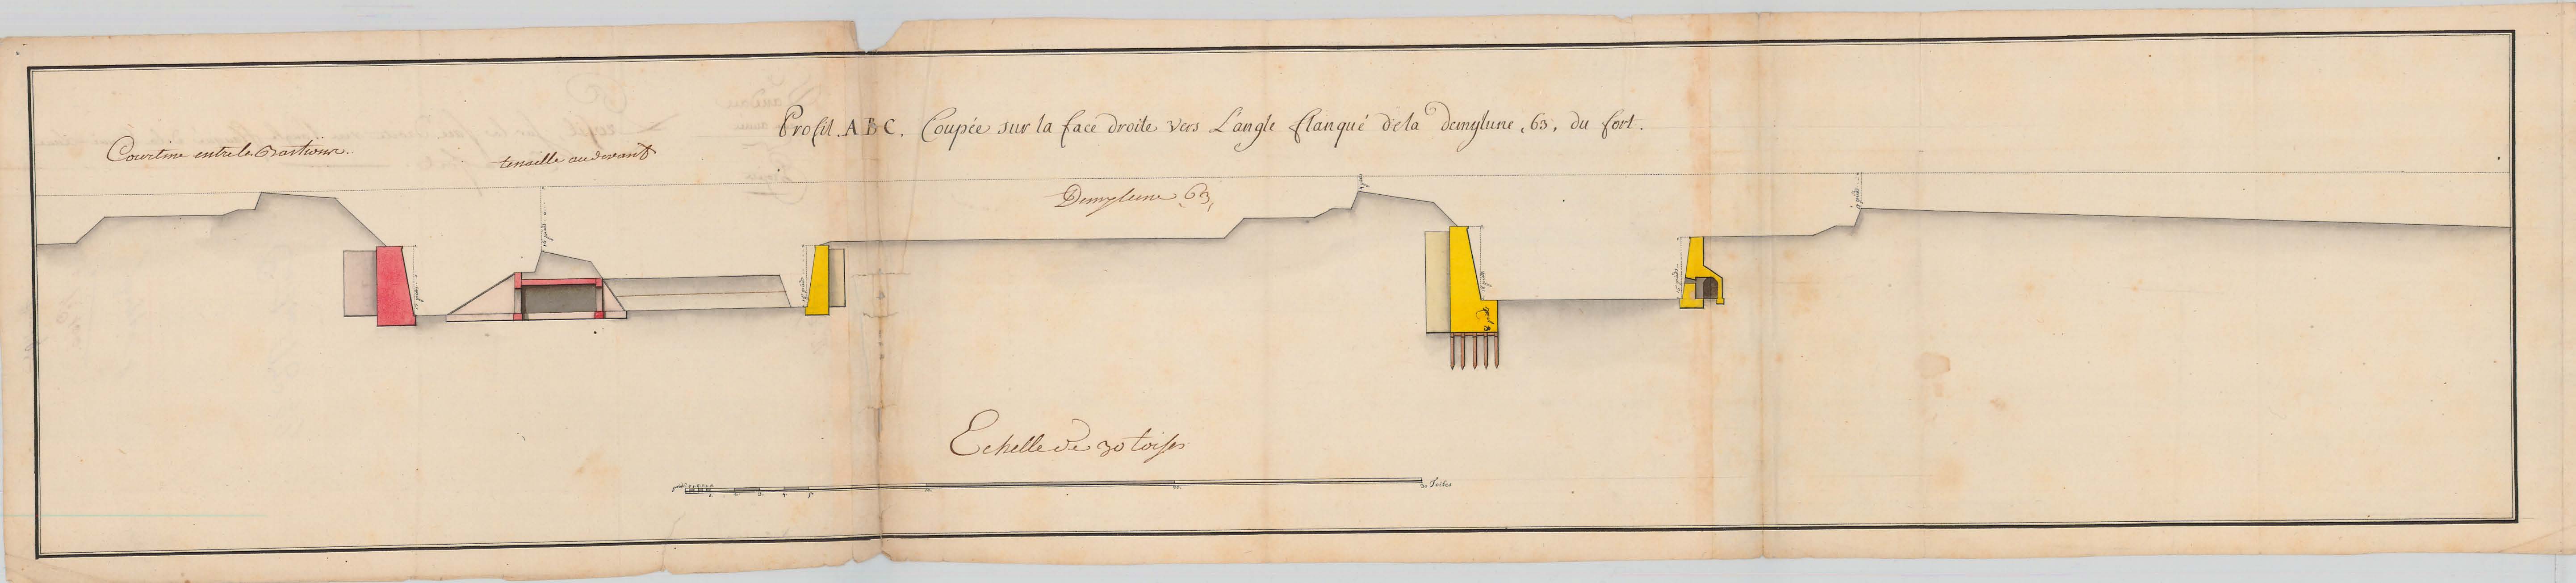 Profil. ABC. Coupée sur la face droite vers L'angle flanqué dela demylune, 63, du fort.
Courtine entre les Bastions.
tenaille audevant
Demylune 63,
Echelle de 30 toises
30 Toises